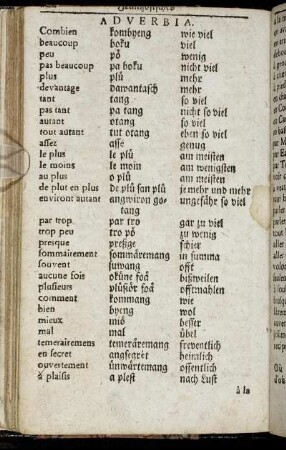 ADVERBIA.
Combien kombyeng wie viel
beaucoup boku viel
peu pö wenig
pas beaucoup pa boku nicht viel
plus plü mehr
devantage dawantasch mehr
tant tang so viel
pas tant pa tang nicht so viel
autant otang so viel
tout autant tut otang eben so viel
assez assé genug
le plus le plü am meisten
le moins le moin am wenigsten
au plus o plü am meisten
de plut en plus de plü san plü je mehr und mehr
environt autant angwiron go- ungefähr so viel
tang
par trop par tro gar zu viel
trop peu tro pö zu wenig
presque preßge schier
sommairement sommäremang in summa
souvent suwang offt
aucune fois oküne foä bißweilen
plusieurs plüsiör foä offtmahlen
comment kommang wie
bien byeng wol
mieux miö besser
mal mal übel
temerairemens temeräremang freventlich
en secret angsegret heimlich
ouvestement unwärtemang offentlich
à plaisis a plesi nach Lust
à la